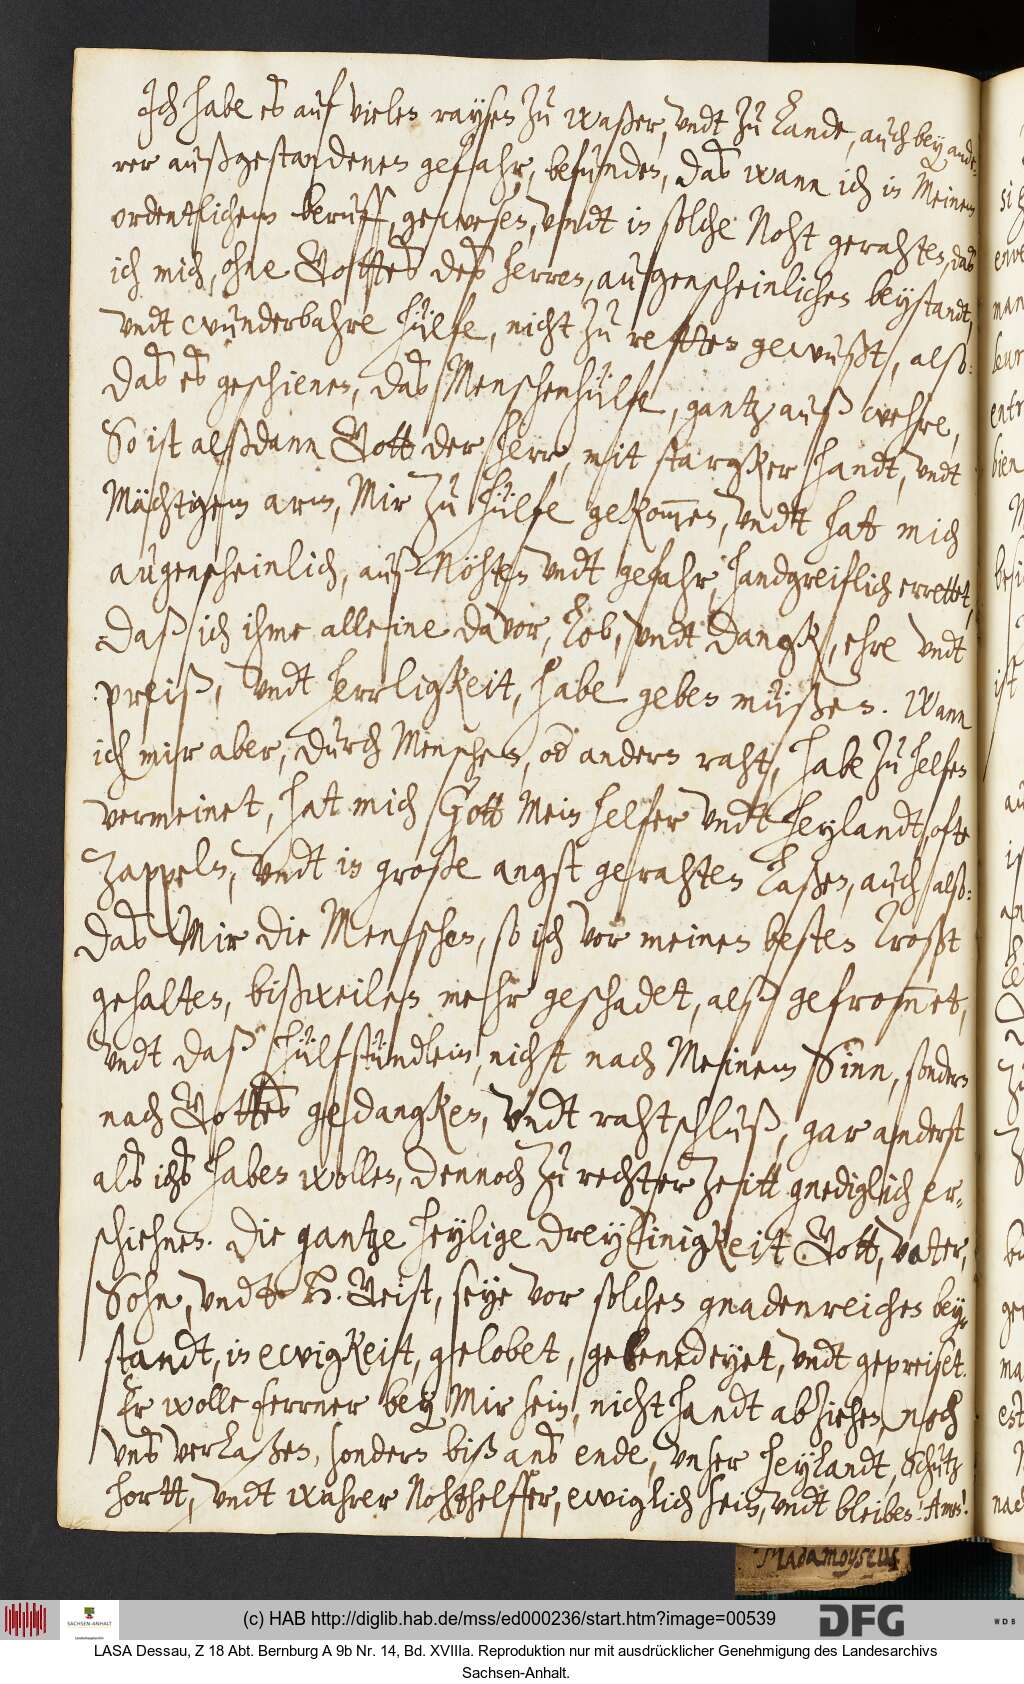 Ich habe es auf vielen raysen zu waßer, vndt zu Lande, auch bey ande-
rer außgestandenen gefahr, befunden, das wann ich in Meinem
ordentlichem beruff, gewesen, vndt in solche Noht gerahten, das
ich mich, ohne Gottes des herren, augenscheinlichen beystandt,
vndt wunderbahre hülfe, nicht zu retten gewußt, also:
das es geschienen, das Menschenhülfe, gantz auß wehre,
So ist alßdann Gott der herr, mit starcker handt, vndt
Mächtigem arm, Mir zu hülfe gekom̅en, vndt hat mich
augenscheinlich, auß Nöhten vndt gefahr, handgreiflich errettet,
Daß ich ihme alleine davor, Lob, vndt dangk, ehre vndt
preiß, vndt herrligkeit, habe geben müßen. Wann
ich mir aber, durch Menschen, od andern raht, habe zu helfen
vermeinet, hat mich Gott Mein helfer vndt heylandt, ofte
zappeln, vndt in große angst gerahten Laßen, auch also:
das Mir die Menschen, so ich vor meinen besten Troßt
gehalten, bißweilen mehr geschadet, alß gefrom̅et,
vndt daß hülfstündlein, nicht nach Meinem Sinn, sondern
nach Gottes gedangken, vndt rahtschluß, gar anderst
als ichs haben wollen, dennoch zu rechter zeitt gnediglich er-
schiehnen. Die gantze heylige dreyEinigkeit Gott, vater,
Sohn, vndt H. Geist, seye vor solchen gnadenreichen bey-
standt, in ewigkeit, gelobet, gebenedeyet, vndt gepreiset.
Er wolle ferrner bey Mir sein, nicht handt abziehen, noch
vns verLaßen, sondern biß ans ende, vnser heylandt, Schutz
hortt, vndt wahrer Nohthelffer, ewiglich sein, vndt bleiben! Amen!
Madamoyselle
(c) HAB http://diglib.hab.de/mss/ed000236/start.htm?image=00539
SACHSEN-ANHALT
DFG
WDB
LASA Dessau, Z 18 Abt. Bernburg A 9b Nr. 14, Bd. XVIIIa. Reproduktion nur mit ausdrücklicher Genehmigung des Landesarchivs
Sachsen-Anhalt.